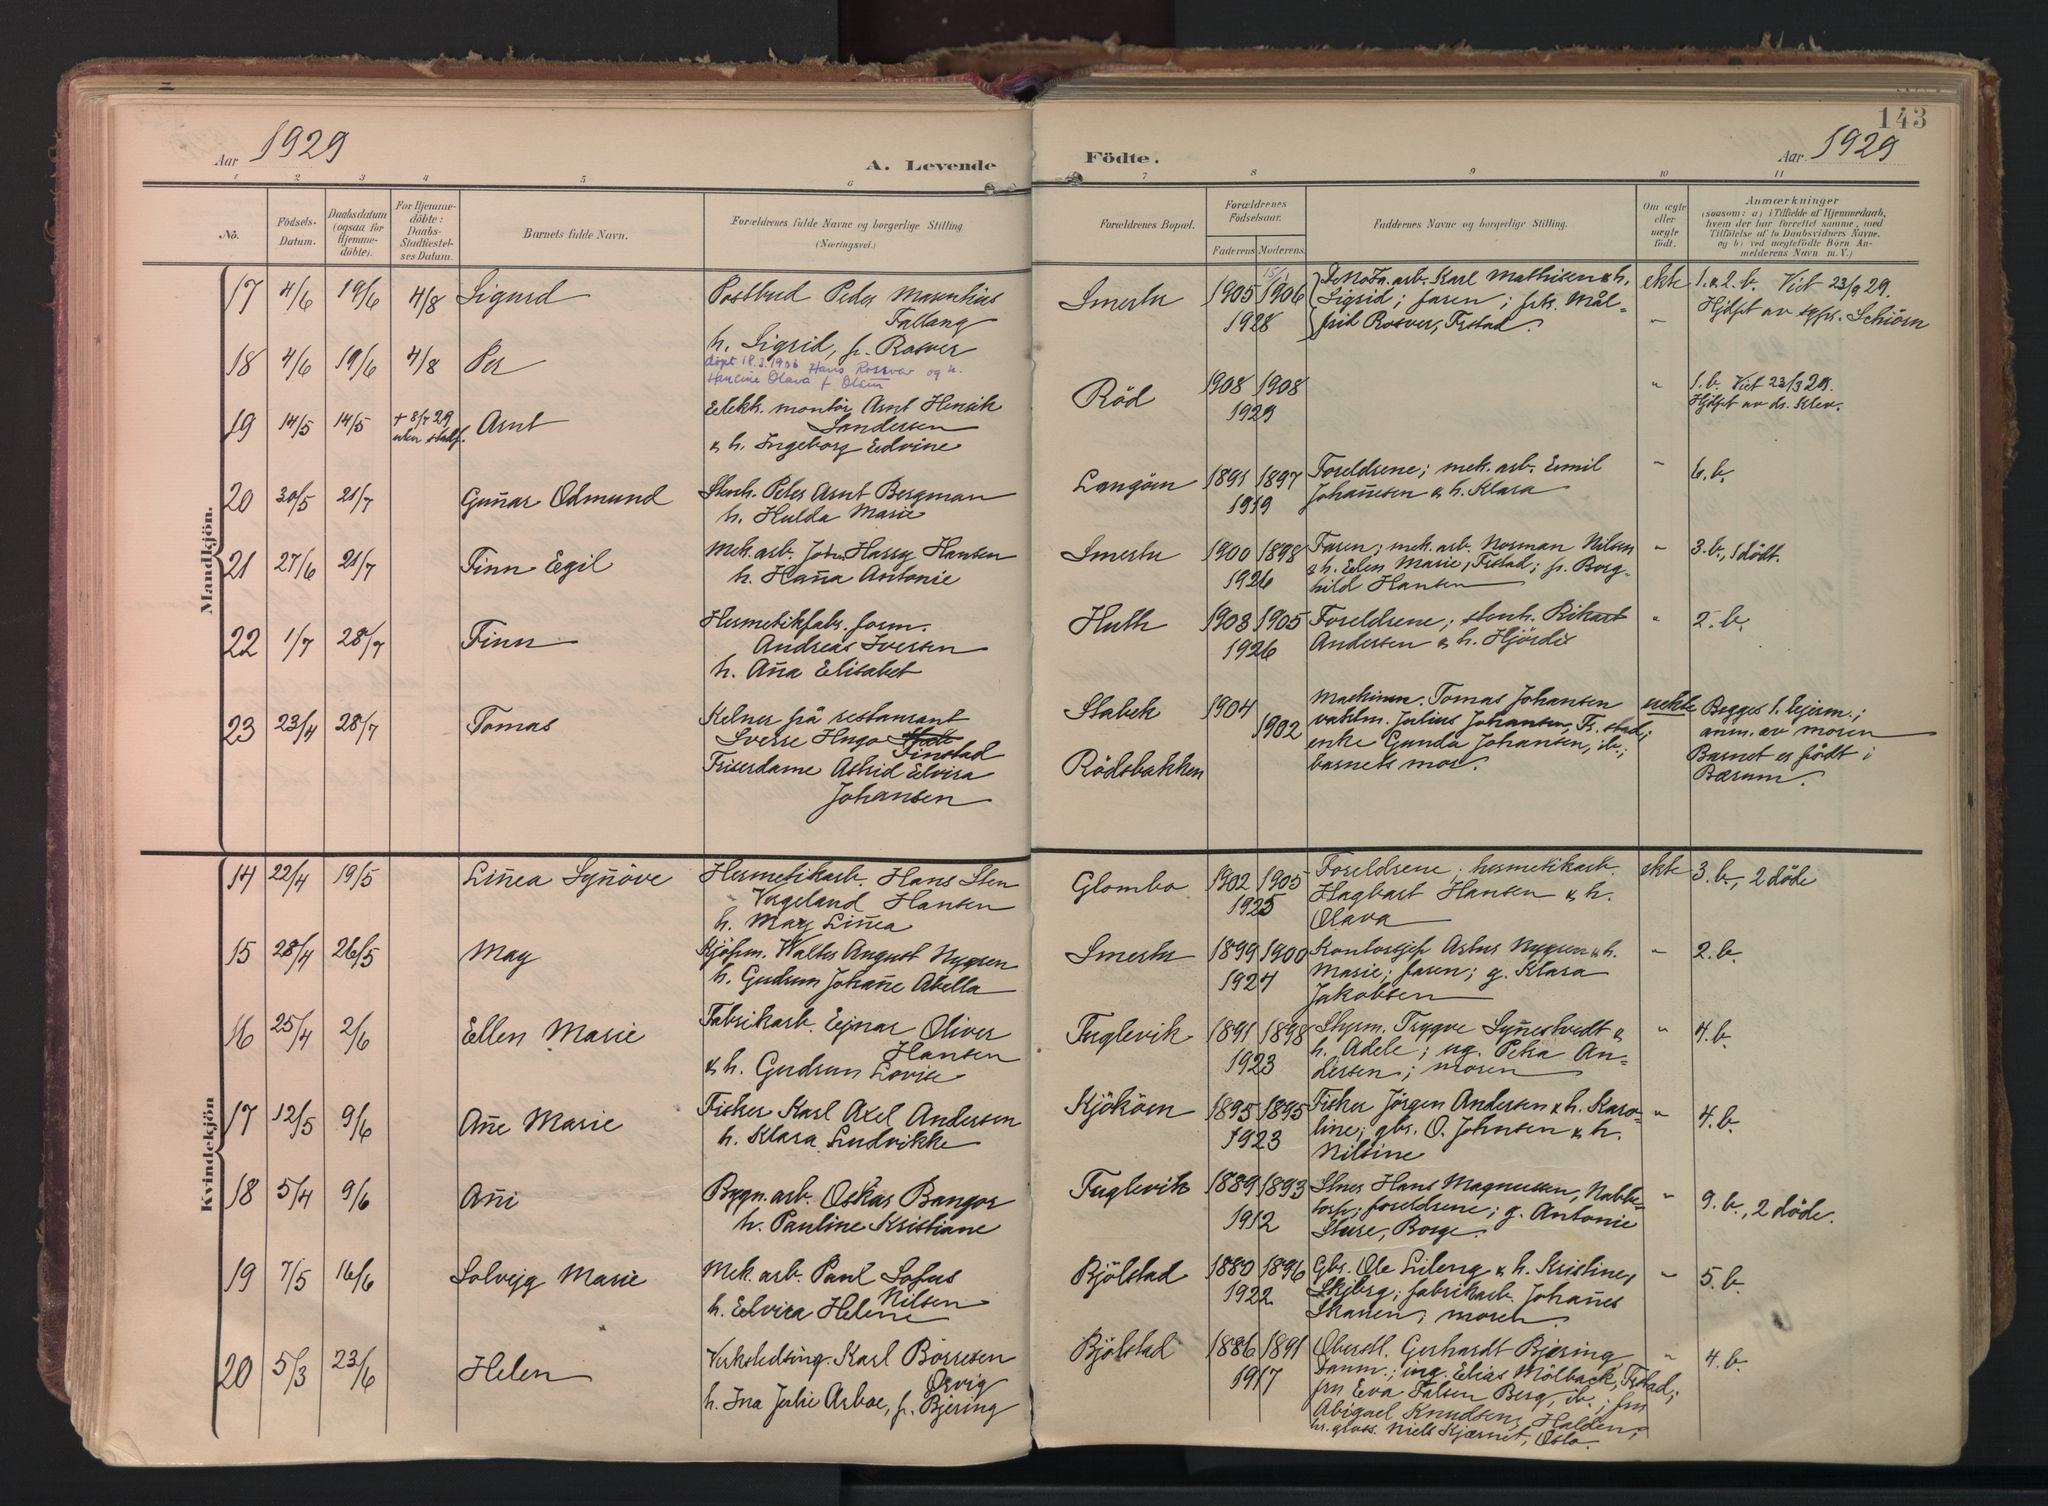 143
Aar 1929 A. Levende Födte. Aar 1929
1 2 3 4 5 6 7 8 9 10 11
No. Födsels-Datum. Daabsdatum (ogsaa for Hjemme-döbte). For Hjemme-döbte: Daabs-Stadfæstel-ses Datum. Barnets fulde Navn. Forældrenes fulde Navne og borgerlige Stilling (Næringsvei.) Forældrenes Bopæl. Forældrenes Födselsaar. Faderens Moderens Faddernes Navne og borgerlige Stilling. Om ægte eller uægte födt. Anmærkninger (saasom: a) i Tilfælde af Hjemmedaab, hvem der har forrettet samme, med Tilföielse af to Daabsvidners Navne, og b) ved uegtefödte Börn Anmelderens Navn m. V.)
Mandkjön.
17 4/6 19/6 4/8 Sigurd
Postbud Peder Masentius
Fallang
h. Sigrid, f. Rosver
döpt 18.3.1906 Hans Rossvar og h.
Hansine Olava f Olsen
Smertu 1905 15/1 1906
1928
arb. Karl Mathisen & h.
Sigrid; faren; frk. Mål-
frid Rosver, Frstad.
ekte
1. & 2. b. Viet 23/9 29.
Hjdpt av Schiörn
18 4/6 19/6 4/8 Per
"
19 14/5 14/5 + 8/7 29 uten stadf. Arnt
Elekh. montör Arnt Henrik
Sandersen
& h. Ingeborg Edvine
Röd 1908 1908
1929
"
1. b. Viet 23/3 29.
Hjdpt av ds. Klev.
20 30/5 21/7 Gun̄ar Odmund
Stenh. Peder Arnt Bergman
h. Hulda Marie
Langöen 1891 1897
1919
Foreldrene; mek. arb. Emil
Johan̄sen & h. Klara
"
6. b.
21 27/6 21/7 Finn Egil
Mek. arb. John Harry Hansen
h. Han̄a Antonie
Smertu 1900 1898
1926
Faren; mek. arb. Norman Nilsen
& h. Ellen Marie, Frstad; f. Borg-
hild Hansen
"
3. b., 1 dödt.
22 1/7 28/7 Finn
Hermetikfabr. form.
Andreas Iversen
h. An̄a Elisabet
Huth 1903 1905
1926
Foreldrene; stenh. Rikart
Andersen & h. Hjördis
"
2. b.
23 23/4 28/7 Tomas
Kelner på restaurant
Sverre Hugo
Finstad
Friserdame Astrid Elvira
Johansen
Stabek 1904
1902
Rödsbakken
Maskinm. Tomas Johansen
vaktm. Julius Johansen, Fr.stad;
enke Gunda Johansen, ib.;
barnets mor.
uekte
Begges 1. leierm.;
anm. av moren
Barnet er födt i
Bærum.
Kvindekjön
14 22/4 19/5 Lin̄ea Syn̄öve
Hermetikarb. Hans Sten
Vegeland Hansen
h. May Lin̄ea
Glombo 1902 1905
1925
Foreldrene; hermetikarb.
Hagbart Hansen & h.
Olava
ekte
3. b., 2 döde
15 28/4 26/5 May
Kjöpm. Walter August Nygren
h. Gudrun Johan̄e Abella
Smertu 1899 1900
1927
Kontorsjef Artur Nygren & h.
Marie; faren; g. Klara
Jakobsen
"
2. b.
16 25/4 2/6 Ellen Marie
Fabrikarb. Ejnar Oliver
Hansen
& h. Gudrun Lovise
Fuglevik 1891 1898
1923
Styrm. Trygve Syn̄estvedt &
h. Adele; ug. Petra An-
dersen; moren
"
4. b.
17 12/5 9/6 An̄e Marie
Fisker Karl Axel Andersen
h. Klara Ludvikke
Kjököen 1895 1895
1923
Fisker Jörgen Andersen & h. Karo-
line; gbr. O. Johnsen & h.
Nilsine
"
4. b.
18 5/4 9/6 An̄i
Bygn. arb. Oskar Bangor
h. Pauline Kristiane
Fuglevik 1889 1893
1912
Stner Hans Magnussen, Nabbe-
torp; foreldrene; g. Antonie
Sture, Borge.
"
9. b., 2 döde.
19 7/5 16/6 Solvejg Marie
Mek. arb. Paul Sofus
Nilsen
h. Elvira Helene
Bjölstad 1880 1896
1922
Gbr. Ole Lileng & h. Kristine,
Skjberg; fabrikarb. Johan̄es
Skanen; moren
"
5. b.
20 5/3 23/6 Helen
Verkstedsing. Karl Börresen
Örvig
h. Ina Julie Arboe, f. Bjering
Bjölstad 1886 1891
1917
Oberstl. Gerhardt Bjering
Damm.; ing. Elias Mölback, Frstad;
fru Eva Falsen Berg, ib.; fru
Abigael Knudsen, Halden;
hr. gross. Niels Kjærnet, Oslo.
"
4. b.